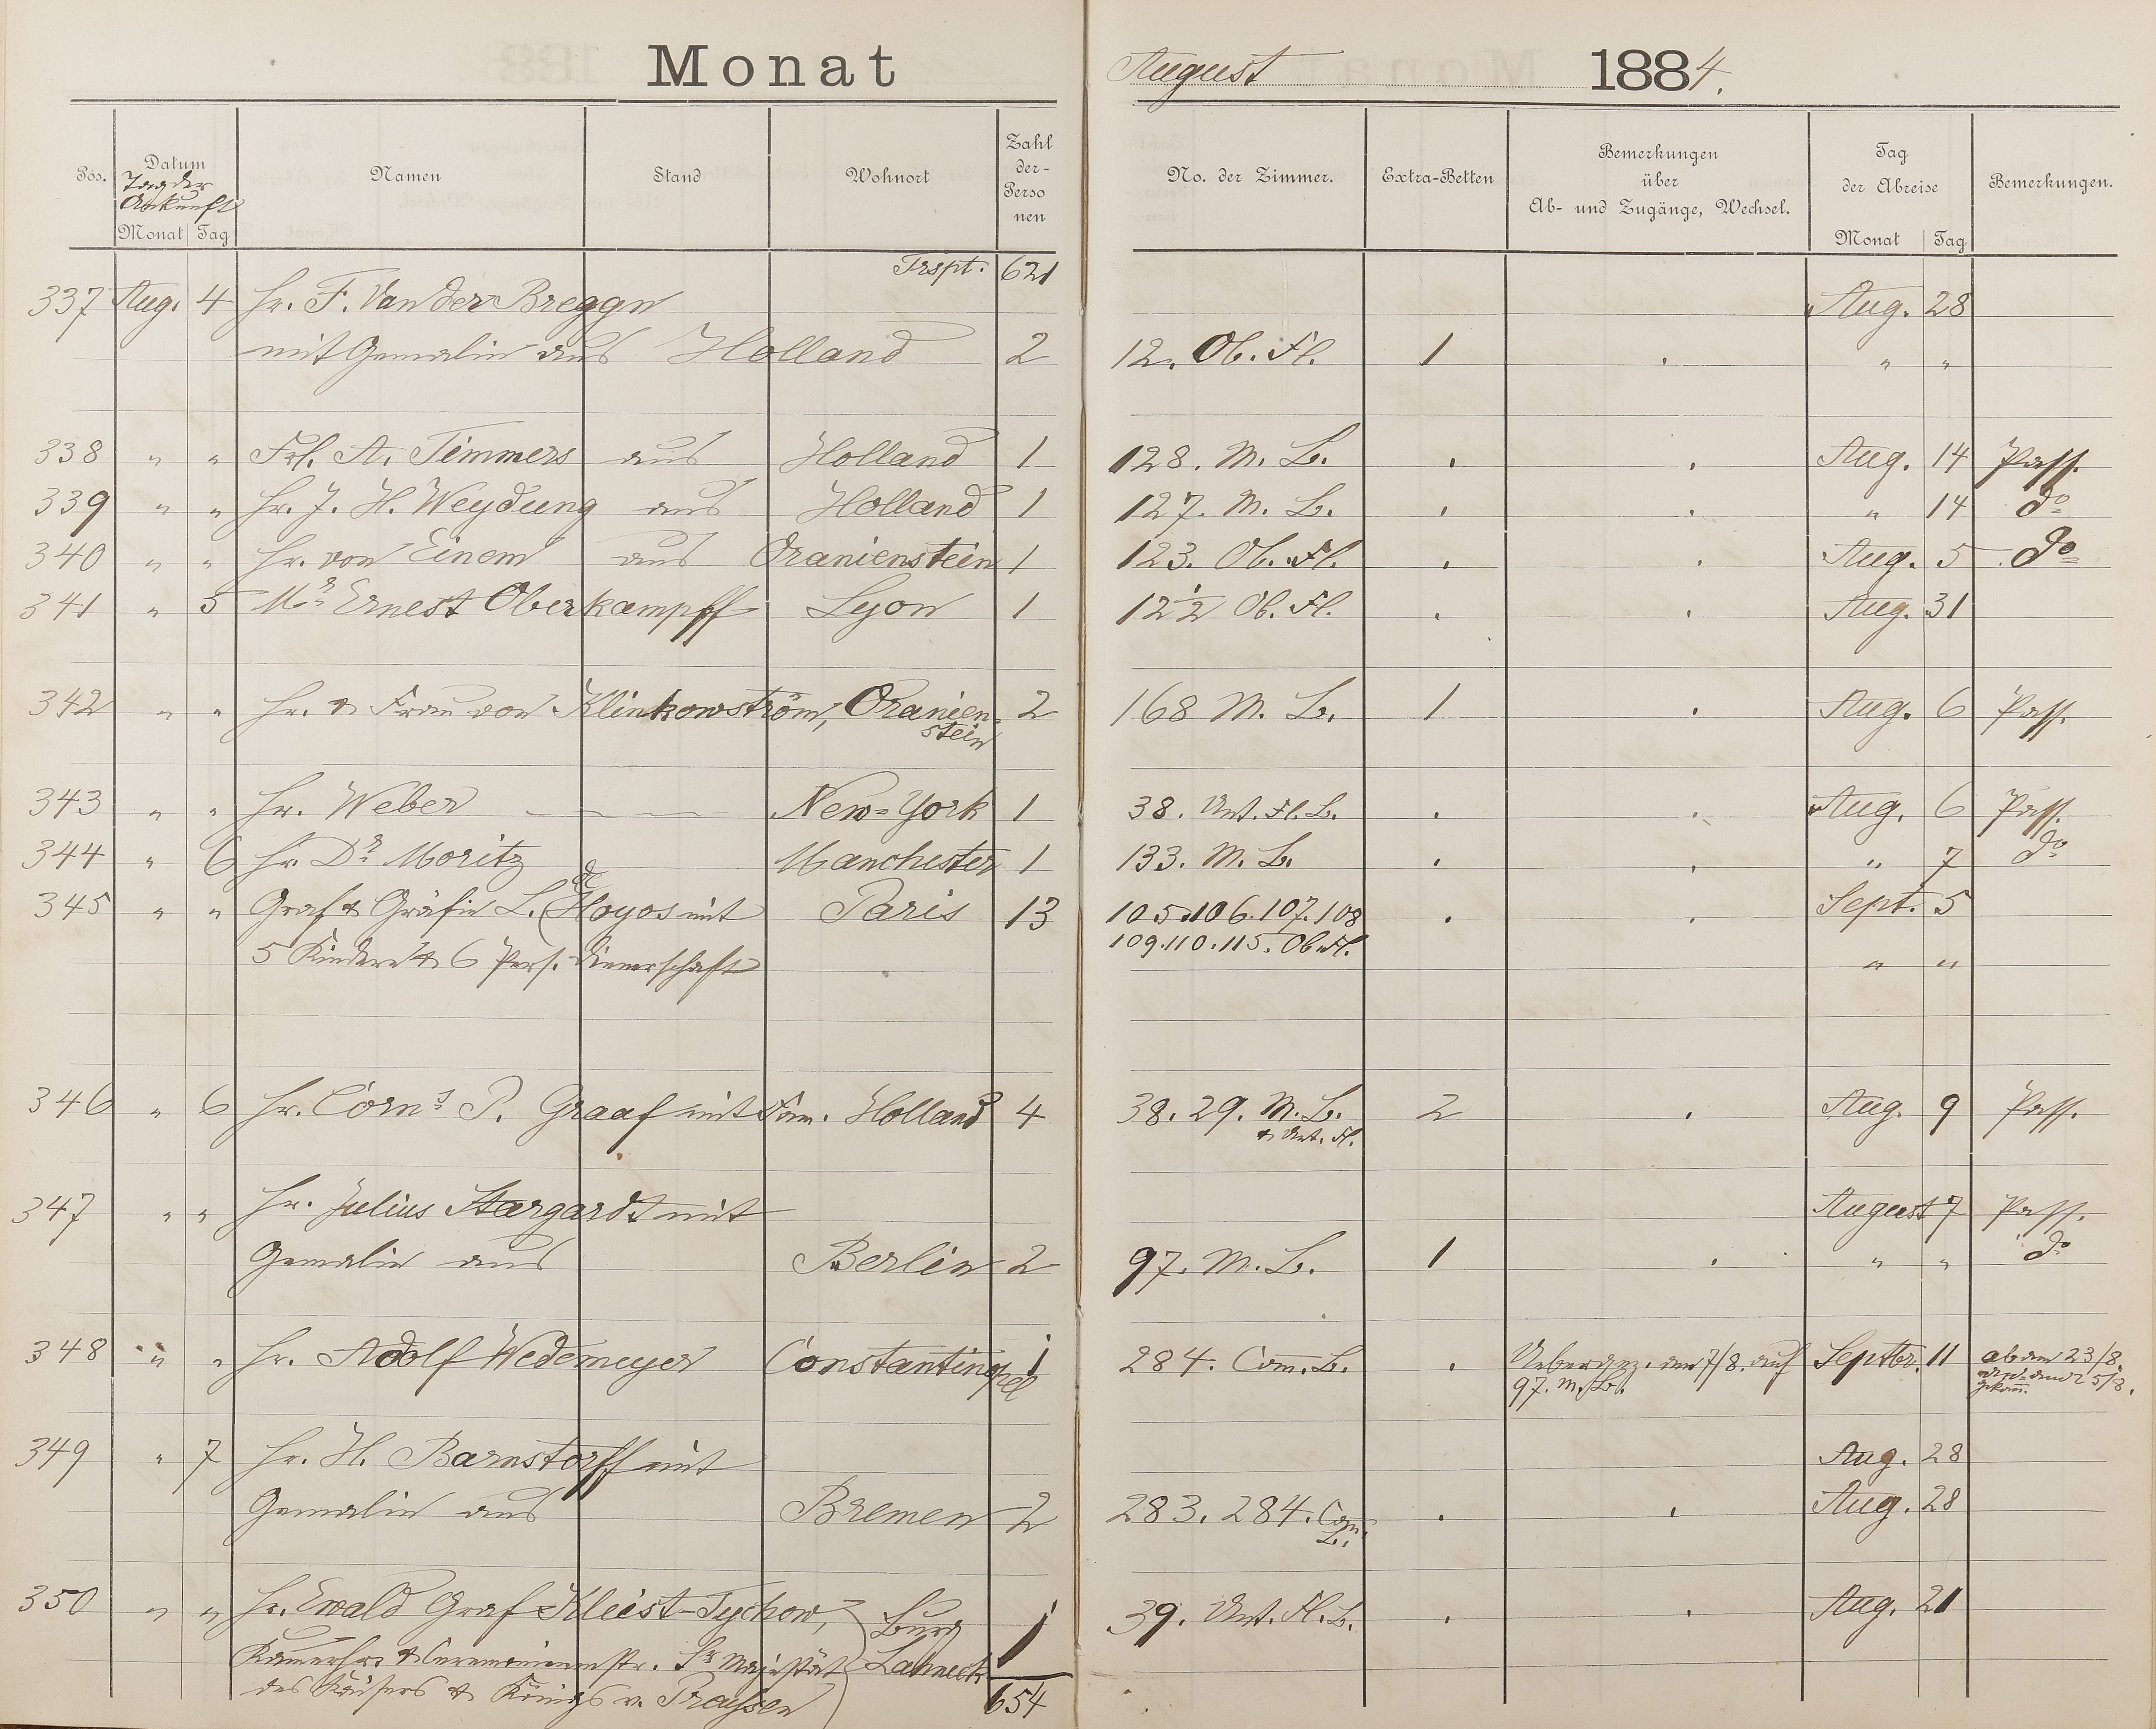 Monat August 1884.
Pos. Datum Namen Stand Wohnort Zahl der- Perso nen No. der Zimmer. Extra-Betten Bemerkungen über Ab- und Zugänge, Wechsel. Tag der Abreise Bemerkungen.
Tag der Ankunft
Monat Tag Monat Tag
Trspt. 621
337 Aug. 4 Hr. F. Van der Breggn Aug. 28
mit Gemalin aus Holland 2 12. Ob. Fl. 1 . " "
338 " " Frl. A. Timmers aus Holland 1 128. M. B. . . Aug. 14 Pass.
339 " " Hr. J. H. Weydung aus Holland 1 127. M. B. . . " 14 do
340 " " Hr. von Einem aus Oranienstein 1 123. Ob. Fl. . . Aug. 5 do
341 " 5 Mr Ernest Oberkampff Lyon 1 122 Ob. Fl. . . Aug. 31
342 " " Hr. & Frau von Klinkowström, Oranien- 2 168 M. B. 1 . Aug. 6 Pass.
stein
343 " " Hr. Weber — — — New-York 1 38. Unt. Fl. B. . . Aug. 6 Pass.
344 " 6 Hr. Dr Moritz Manchester 1 133. M. B. . . " 7 do
345 " " Graf & Gräfin L. de Hoyos mit Paris 13 105.106.107.108 . . Sept. 5
5 Kindern & 6 Pers. Dienerschaft 109.110.115. Ob. Fl. " "
346 " 6 Hr. Corns P. Graaf mit Fam. Holland 4 38. 29. M. B. 2 . Aug. 9 Pass.
& Unt. Fl.
347 " " Hr. Julius Stargardt mit August 7 Pass.
Gemalin aus Berlin 2 97. M. B. 1 . " " do
348 " " Hr. Adolf Wedemeyer Constantinopel 1 284. Com. B. . Ueber am 7/8. auf Septbr. 11 ab am 23/8.
97. M. B. 25/8.
349 " 7 Hr. H. Barnstorff mit Aug. 28
Gemalin aus Bremen 2 283. 284. Com. B. . . Aug. 28
350 " " Hr. Ewald Graf Kleist-Tychow, Burg 1 39. Unt. Fl. B. . . Aug. 21
Kamerhr. & Ceremonienmstr. Sr Majestät Lahneck
des Kaisers & Königs v. Preußen 654